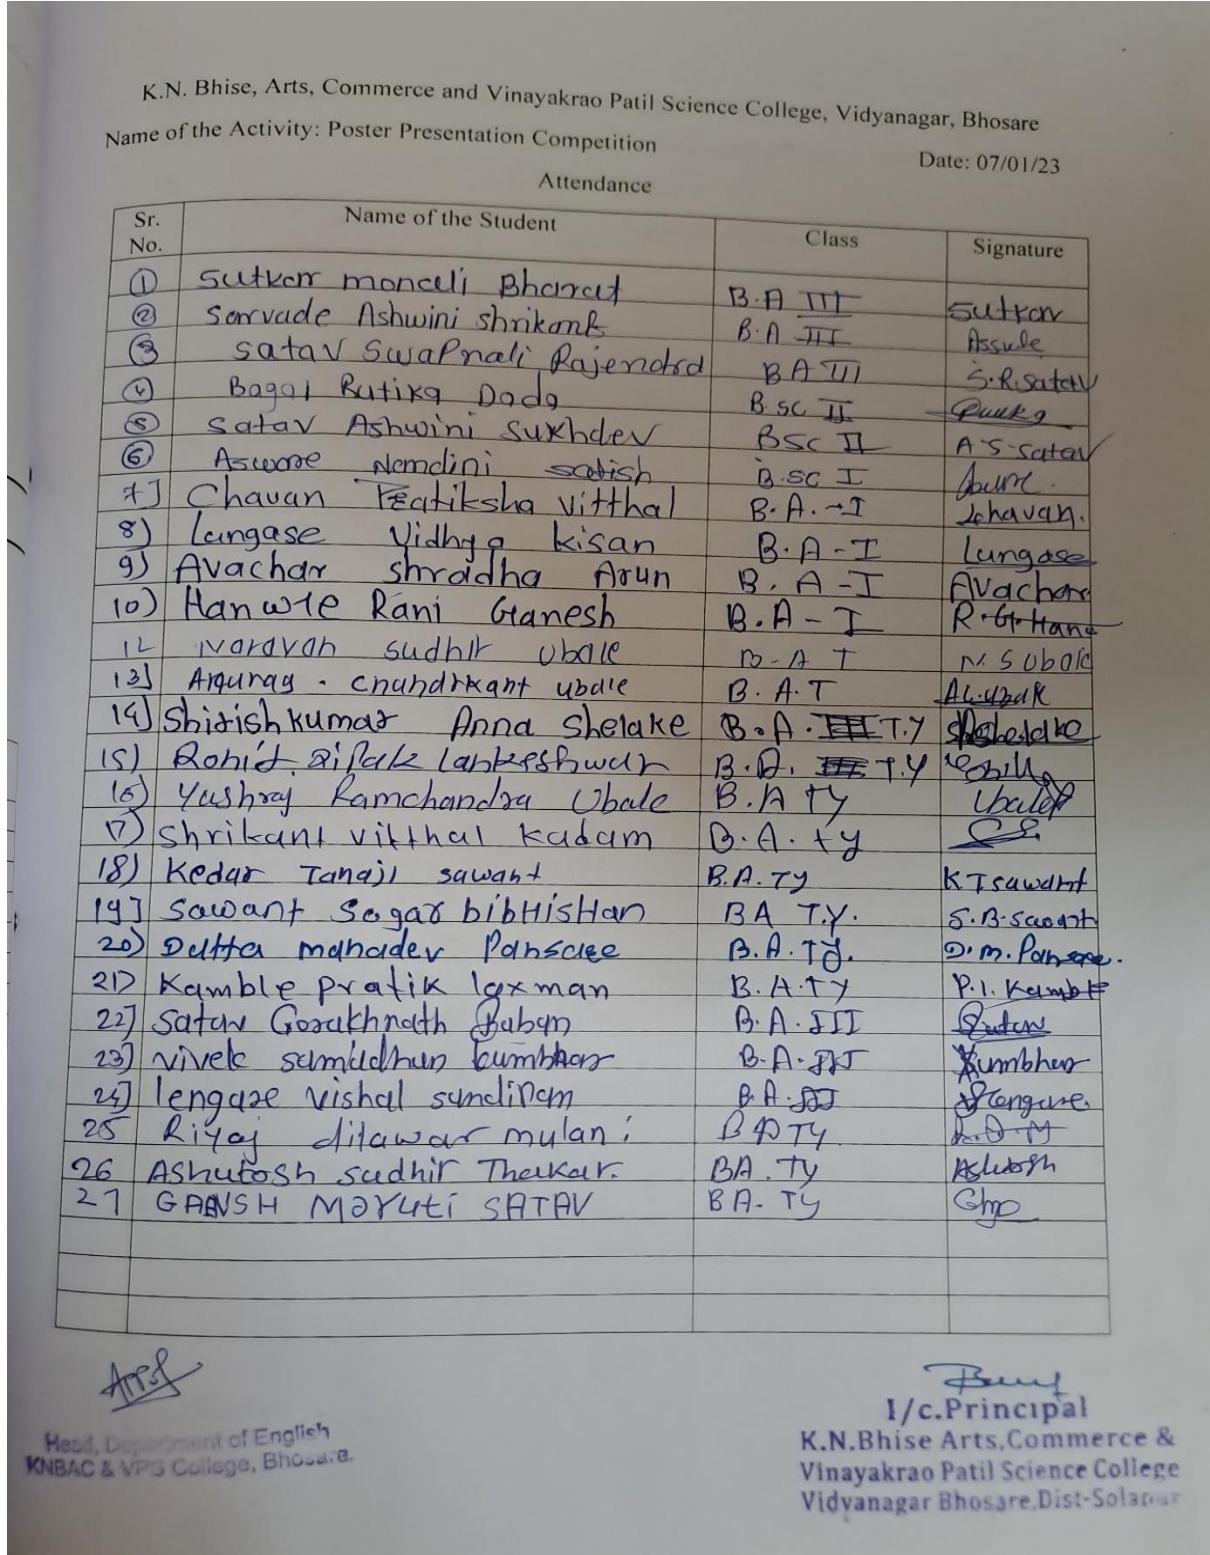 K.N. Bhise, Arts, Commerce and Vinayakrao Patil Science College, Vidyanagar, Bhosare
Name of the Activity: Poster Presentation Competition
Date: 07/01/23
Attendance
Sr. No. Name of the Student Class Signature
① Sutkar monali Bharat B.A III Sutkar
② Sarvade Ashwini shrikant B.A III
③ Satav Swapnali Rajendra BA III S.R.Satav
④ Bagal Rutika Dada B.sc II
⑤ Satav Ashwini Sukhdev BSc II A.S.Satav
⑥ Aswore Nandini satish B.sc I
7] Chavan Pratiksha Vitthal B.A.-I Chavan.
8) Lungase Vidhya kisan B.A-I Lungase
9) Avachar shradha Arun B.A-I Avachar
10) Hanwte Rani Ganesh B.A-I
12 Narayan sudhir Ubale B-A I N.S Ubale
13] Anurag. Chandrkant ubale B.A.I
14] Shirishkumar Anna Shelake B.A. T.Y
15) Rohit Dipak Lankeshwar B.A. T.Y
16) Yashraj Ramchandra Ubale B.A TY Ubale
17) Shrikant vitthal kadam B.A.ty
18) Kedar Tanaji sawant B.A.TY K T sawant
19] Sawant Sagar bibHisHan BA T.Y. S.B.Sawant
20) Dutta mahadev Pansare B.A.Ty. D.m.Pansare.
21) Kamble pratik laxman B.A.TY P.l.Kamble
22] Satav Gorakhnath Baban B.A.III Satav
23] vivek samadhan kumbhar B.A.III Kumbhar
24] lengare vishal sandipan B.A.III Lengare.
25 Riyaj dilawar mulani BA TY
26 Ashutosh sudhir Thakar. BA.Ty Ashutosh
27 GANSH Maruti SATAV BA- Ty
Head, Department of English
KNBAC & VPS College, Bhosare.
I/c.Principal
K.N.Bhise Arts,Commerce &
Vinayakrao Patil Science College
Vidyanagar Bhosare,Dist-Solapur